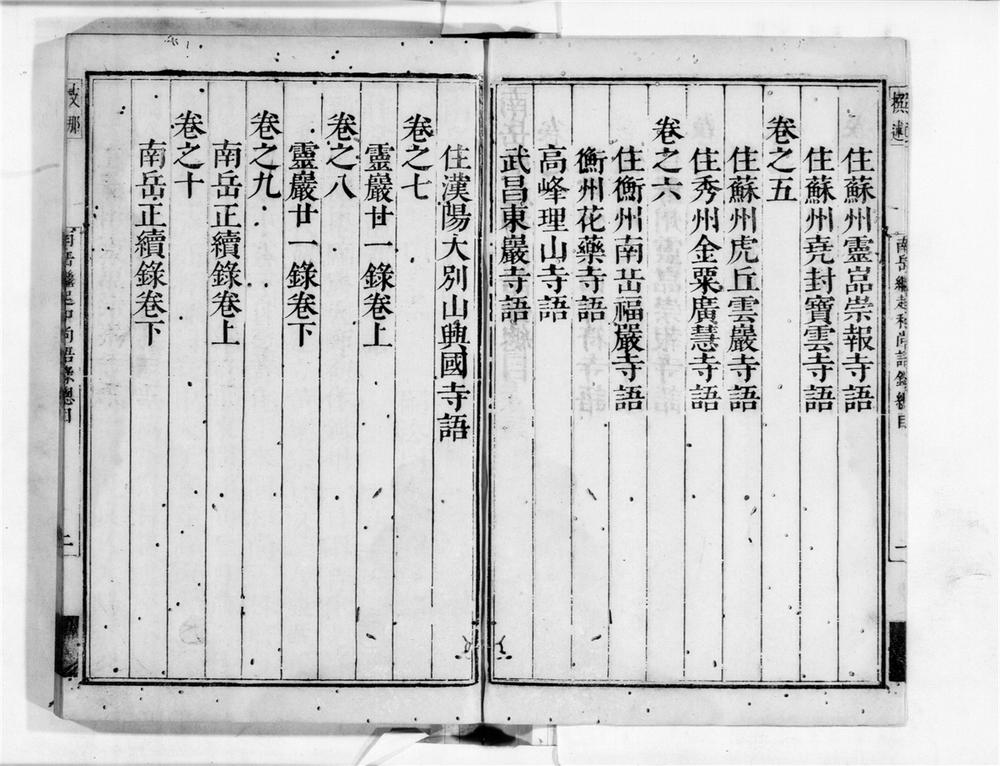 住蘇州靈嵓崇報寺語
住蘇州堯封寶雲寺語
卷之五
住蘇州虎丘雲巖寺語
住秀州金粟廣慧寺語
卷之六
住衡州南岳福嚴寺語
衡州花藥寺語
高峰理山寺語
武昌東巖寺語
住漢陽大別山興國寺語
卷之七
靈巖廿一錄卷上
卷之八
靈巖廿一錄卷下
卷之九
南岳正續錄卷上
卷之十
南岳正續錄卷下
二